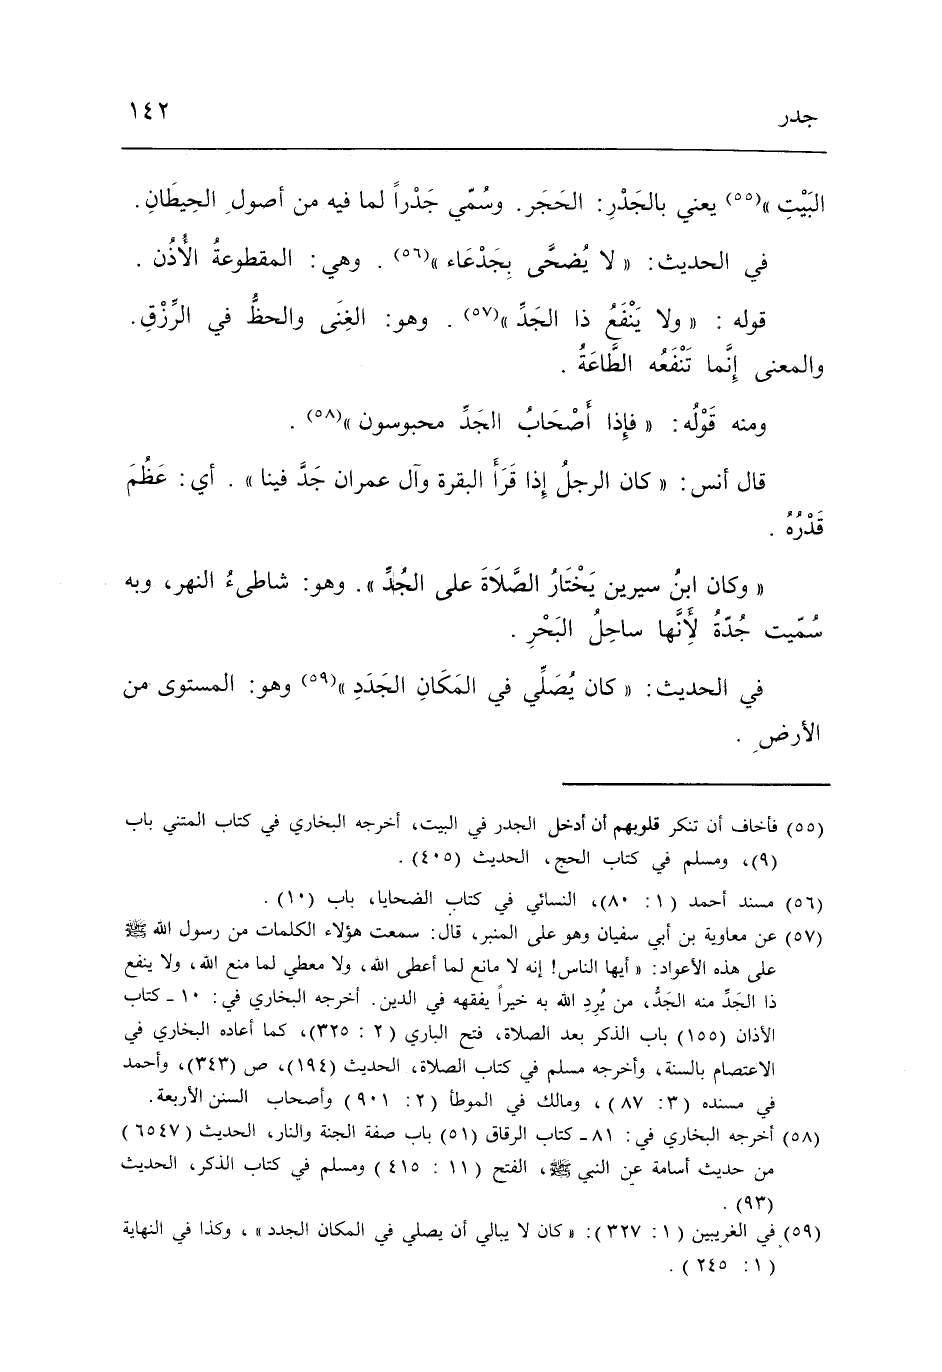 جدر
١٤٢
البَيْتِ »(٥٥) يعني بالجَدْرِ: الحَجَر. وسُمّي جَدْراً لما فيه من أصولِ الحِيطَانِ.
في الحديث: « لا يُضحَّى بِجَدْعَاء »(٥٦) . وهي: المقطوعةُ الأُذُن .
قوله : « ولا يَنْفَعُ ذا الجَدِّ »(٥٧) . وهو: الغِنَى والحظُّ في الرِّزْقِ.
والمعنى إِنَّما تَنْفَعُه الطَّاعَةُ .
ومنه قَوْلُه: « فإِذا أَصْحَابُ الجَدِّ محبوسون »(٥٨) .
قال أنس: « كان الرجلُ إِذا قَرَأَ البقرة وآل عمران جَدَّ فينا » . أي: عَظُمَ
قَدْرُهُ .
« وكان ابنُ سيرين يَخْتَارُ الصَّلَاةَ على الجُدِّ ». وهو: شاطىءُ النهر، وبه
سُمّيت جُدّةُ لأَنَّها ساحِلُ البَحْرِ .
في الحديث: « كان يُصَلِّي في المَكَانِ الجَدَدِ »(٥٩) وهو: المستوى من
الأرضِ .
(٥٥) فأخاف أن تنكر قلوبهم أن أدخل الجدر في البيت، أخرجه البخاري في كتاب المتني باب
(٩)، ومسلم في كتاب الحج، الحديث (٤٠٥) .
(٥٦) مسند أحمد (١ : ٨٠)، النسائي في كتاب الضحايا، باب (١٠) .
(٥٧) عن معاوية بن أبي سفيان وهو على المنبر، قال: سمعت هؤلاء الكلمات من رسول الله ﷺ
على هذه الأعواد: « أيها الناس! إنه لا مانع لما أعطى الله، ولا معطي لما منع الله، ولا ينفع
ذا الجَدِّ منه الجَدُّ، من يُرِدِ الله به خيراً يفقهه في الدين. أخرجه البخاري في: ١٠ ـ كتاب
الأذان (١٥٥) باب الذكر بعد الصلاة، فتح الباري (٢ : ٣٢٥)، كما أعاده البخاري في
الاعتصام بالسنة، وأخرجه مسلم في كتاب الصلاة، الحديث (١٩٤)، ص (٣٤٣)، وأحمد
في مسنده (٣: ٨٧) ، ومالك في الموطأ (٢: ٩٠١) وأصحاب السنن الأربعة.
(٥٨) أخرجه البخاري في: ٨١ـ كتاب الرقاق (٥١) باب صفة الجنة والنار، الحديث (٦٥٤٧)
من حديث أسامة عن النبي ﷺ، الفتح (١١ : ٤١٥) ومسلم في كتاب الذكر، الحديث
(٩٣) .
(٥٩) في الغريبين (١: ٣٢٧): « كان لا يبالي أن يصلي في المكان الجدد » ، وكذا في النهاية
(١: ٢٤٥) .